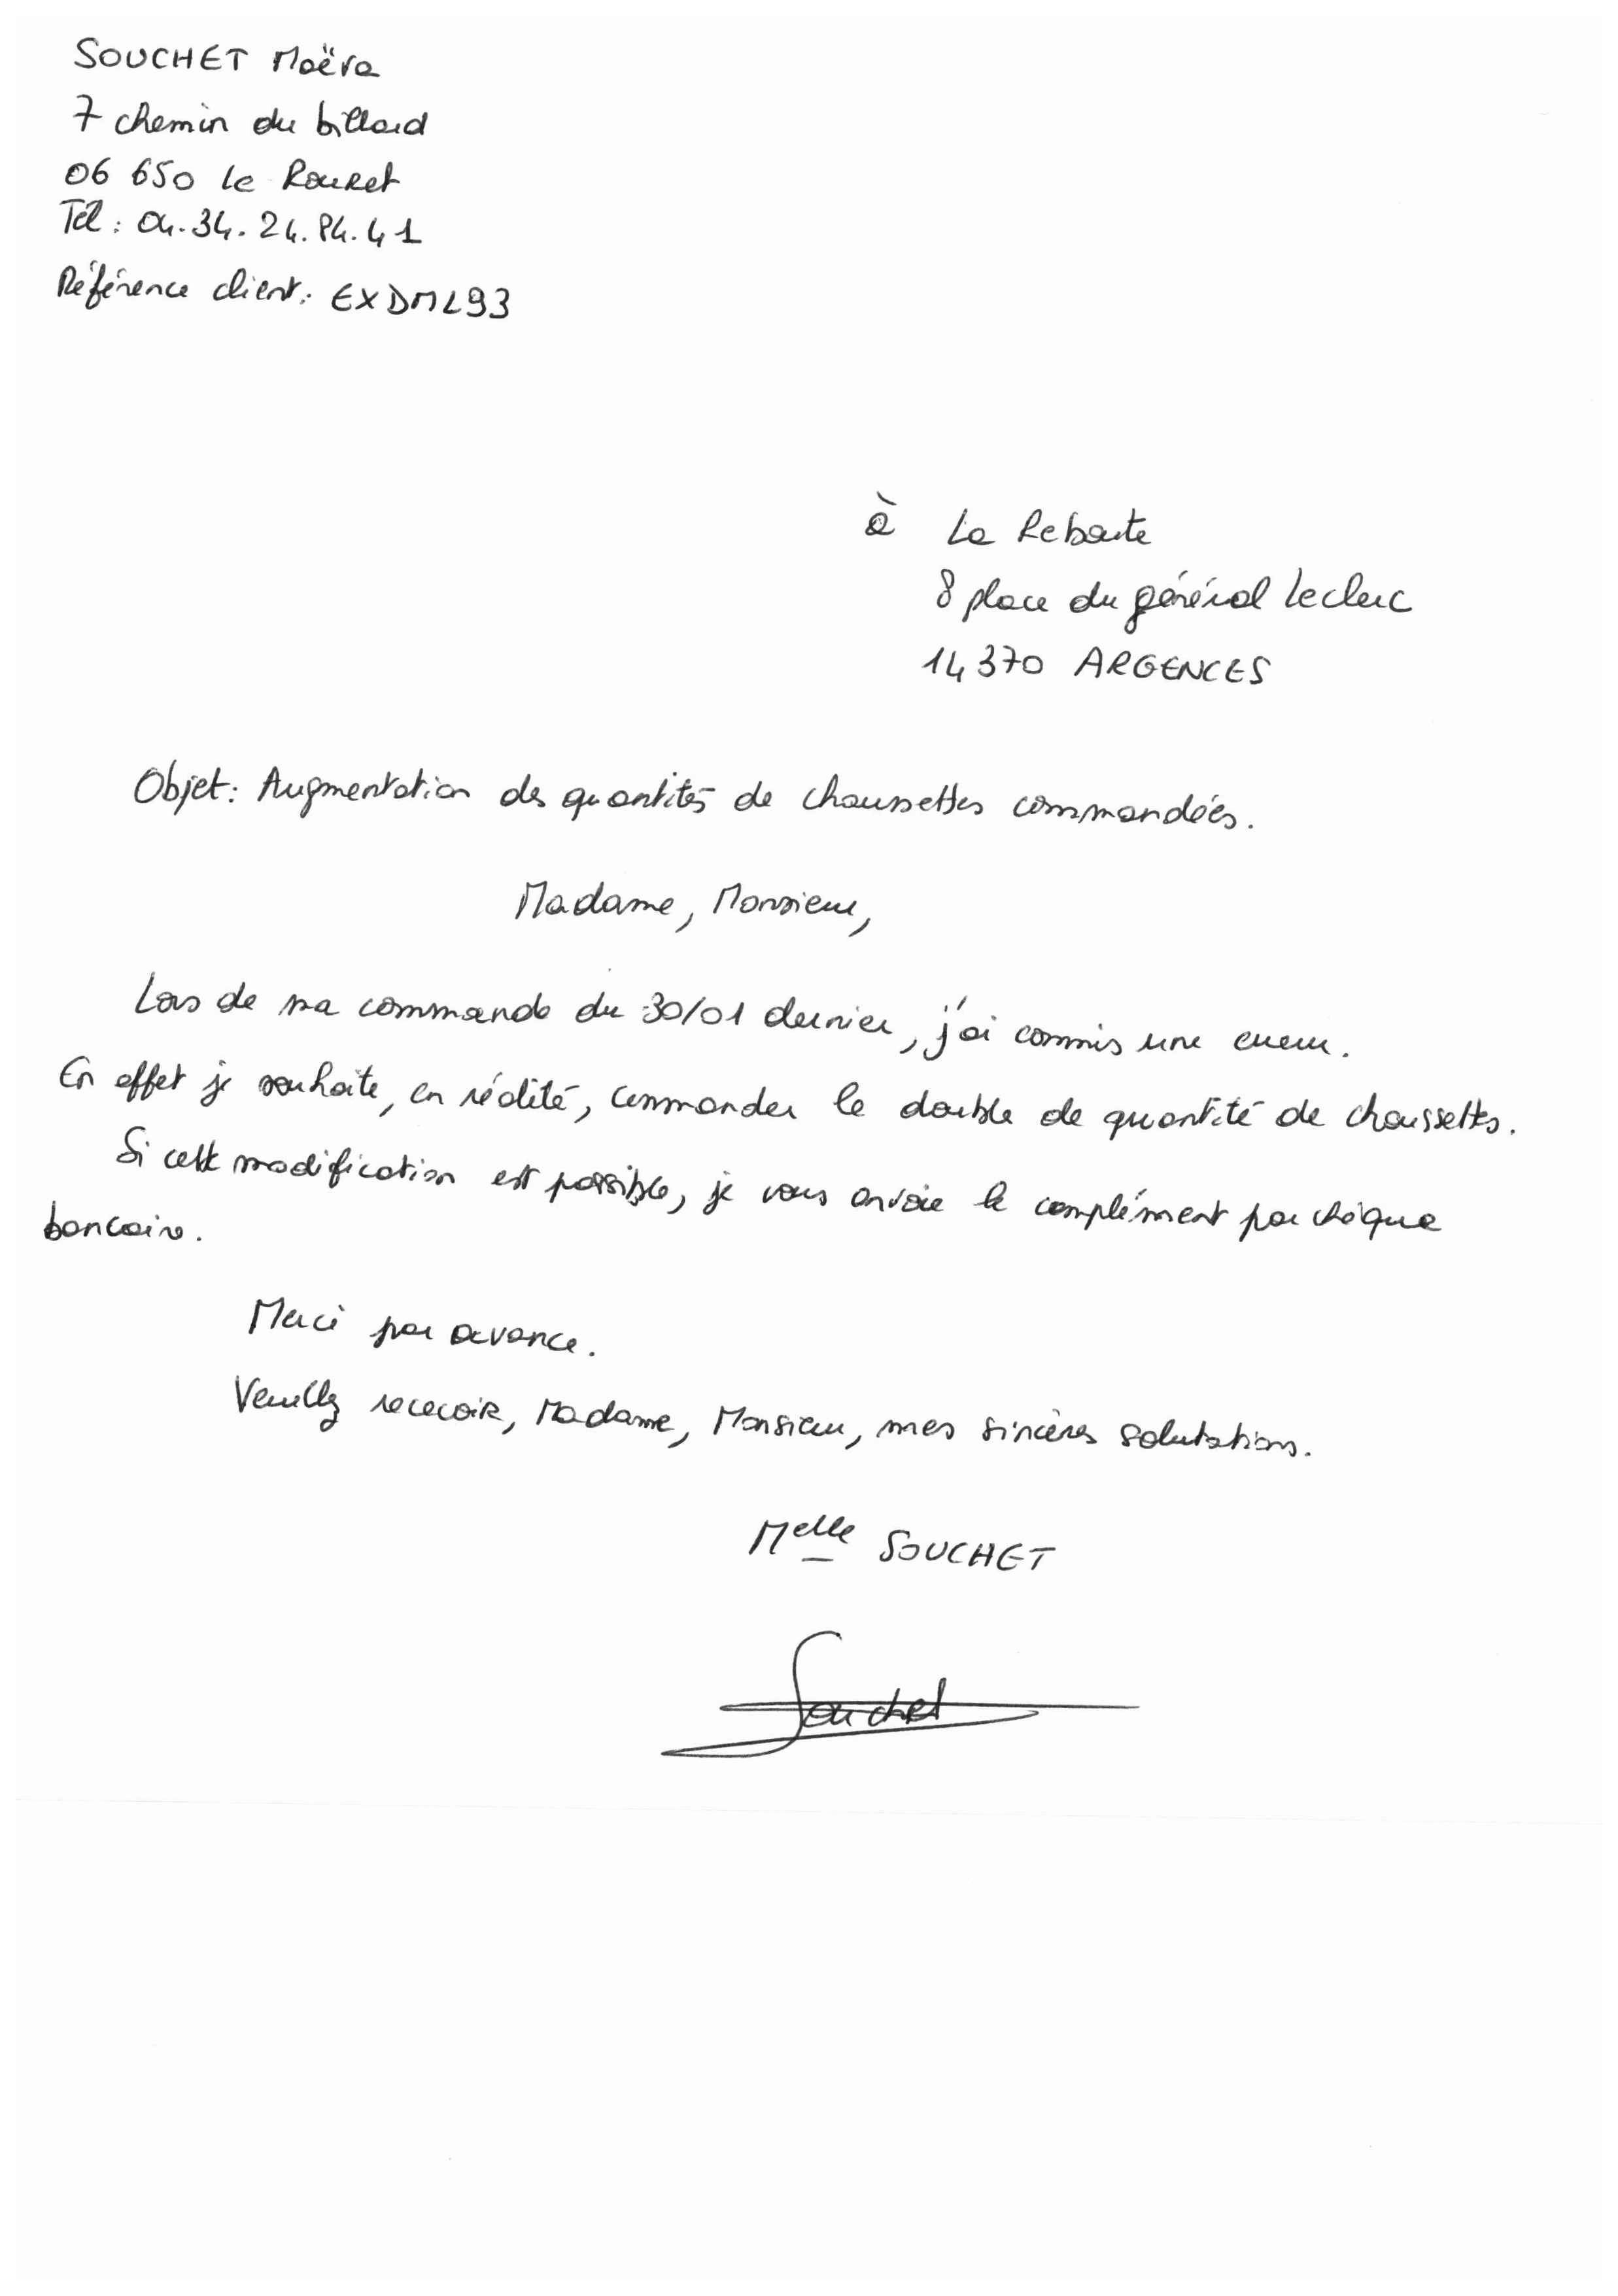 SOUCHET Maëva
7 chemin du billard
06 650 Le Rouret
Tél : 04.34.24.84.41
Référence client : EXDML93
à La Reboute
8 place du général Leclerc
14370 ARGENCES
Objet : Augmentation des quantités de chaussettes commandées.
Madame, Monsieur,
Lors de ma commande du 30/01 dernier, j'ai commis une erreur.
En effet je souhaite, en réalité, commander le double de quantité de chaussettes.
Si cette modification est possible, je vous envoie le complément par chèque
bancaire.
Merci par avance.
Veuillez recevoir, Madame, Monsieur, mes sincères salutations.
Melle SOUCHET
Souchet